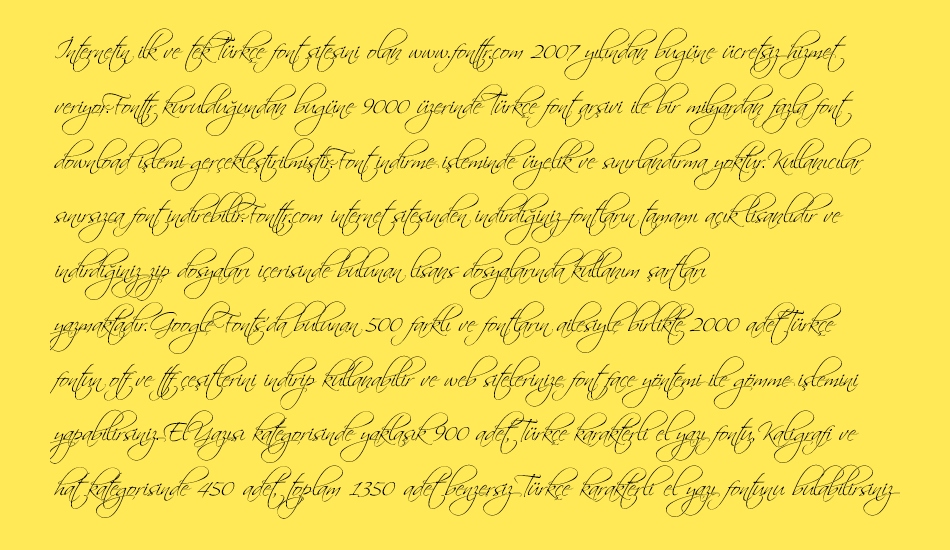 İnternetin ilk ve tek Türkçe font sitesini olan www.fonttr.com 2007 yılından bugüne ücretsiz hizmet
veriyor.Fonttr, kurulduğundan bugüne 9000 üzerinde Türkçe font arşivi ile bir milyardan fazla font
download işlemi gerçekleştirilmiştir.Font indirme işleminde üyelik ve sınırlandırma yoktur.Kullanıcılar
sınırsızca font indirebilir.Fonttr.com internet sitesinden indirdiğiniz fontların tamamı açık lisanlıdır ve
indirdiğiniz zip dosyaları içerisinde bulunan lisans dosyalarında kullanım şartları
yazmaktadır.Google Fonts'da bulunan 500 farklı ve fontların ailesiyle birlikte 2000 adet Türkçe
fontun otf ve ttf çeşitlerini indirip kullanabilir ve web sitelerinize, font face yöntemi ile gömme işlemini
yapabilirsiniz. El Yazısı kategorisinde yaklaşık 900 adet, Türkçe karakterli el yazı fontu, Kaligrafi ve
hat kategorisinde 450 adet, toplam 1350 adet benzersiz Türkçe karakterli el yazı fontunu bulabilirsiniz